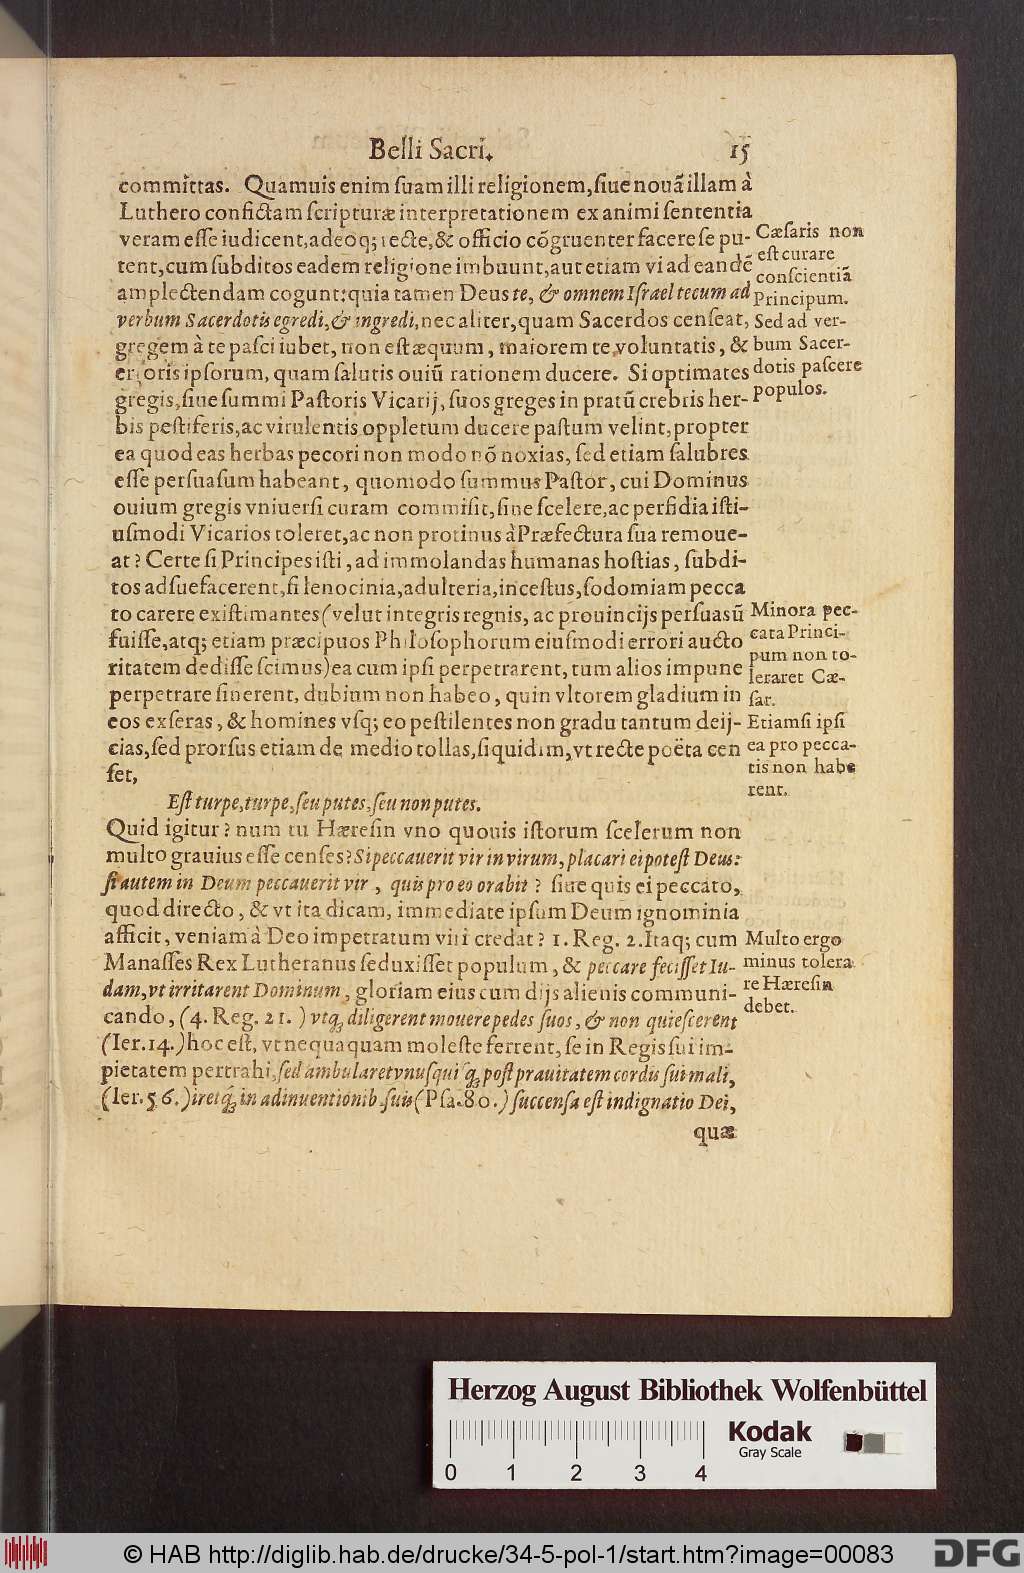 Belli Sacri. 15
committas. Quamuis enim ſuam illi religionem, ſiue nouã illam à
Luthero confictam ſcripturæ interpretationem ex animi ſententia
veram eſſe iudicent, adeoq; recte, & officio cõgruenter facere ſe pu-
tent, cum ſubditos eadem religione imbuunt, aut etiam vi ad eandẽ
amplectendam cogunt: quia tamen Deus te, & omnem Iſrael tecum ad
verbum Sacerdotis egredi, & ingredi, nec aliter, quam Sacerdos cenſeat,
gregem à te paſci iubet, non eſt æquum, maiorem te voluntatis, &
erroris ipſorum, quam ſalutis ouiũ rationem ducere. Si optimates
gregis, ſiue ſummi Paſtoris Vicarij, ſuos greges in pratũ crebris her-
bis peſtiferis, ac virulentis oppletum ducere paſtum velint, propter
ea quod eas herbas pecori non modo nõ noxias, ſed etiam ſalubres
eſſe perſuaſum habeant, quomodo ſummus Paſtor, cui Dominus
ouium gregis vniuerſi curam commiſit, ſine ſcelere, ac perfidia iſti-
uſmodi Vicarios toleret, ac non protinus à Præfectura ſua remoue-
at? Certe ſi Principes iſti, ad immolandas humanas hoſtias, ſubdi-
tos adſuefacerent, ſi lenocinia, adulteria, inceſtus, ſodomiam pecca
to carere exiſtimantes (velut integris regnis, ac prouincijs perſuasũ
fuiſſe, atq; etiam præcipuos Philoſophorum eiuſmodi errori aucto
ritatem dediſſe ſcimus) ea cum ipſi perpetrarent, tum alios impune
perpetrare ſinerent, dubium non habeo, quin vltorem gladium in
eos exſeras, & homines vſq; eo peſtilentes non gradu tantum deij-
cias, ſed prorſus etiam de medio tollas, ſiquidem, vt recte poëta cen
ſet,
Eſt turpe, turpe, ſeu putes, ſeu non putes.
Quid igitur? num tu Hæreſin vno quouis iſtorum ſcelerum non
multo grauius eſſe cenſes? Si peccauerit vir in virum, placari ei poteſt Deus:
ſi autem in Deum peccauerit vir, quis pro eo orabit? ſiue quis ei peccato,
quod directo, & vt ita dicam, immediate ipſum Deum ignominia
afficit, veniam à Deo impetratum viri credat? 1. Reg. 2. Itaq; cum
Manaſſes Rex Lutheranus ſeduxiſſet populum, & peccare feciſſet Iu-
dam, vt irritarent Dominum, gloriam eius cum dijs alienis communi-
cando, (4. Reg. 21. ) vtq; diligerent mouere pedes ſuos, & non quieſcerent
(Ier. 14.) hoc eſt, vt nequaquam moleſte ferrent, ſe in Regis ſui im-
pietatem pertrahi, ſed ambularet vnuſquiſq; poſt prauitatem cordis ſui mali,
(Ier. 56.) iretq; in adinuentionib. ſuis (Pſa. 80.) ſuccenſa eſt indignatio Dei,
quæ
Cæſaris non
eſt curare
conſcientiã
Principum.
Sed ad ver-
bum Sacer-
dotis paſcere
populos.
Minora pec-
cata Princi-
pum non to-
leraret Cæ-
ſar.
Etiamſi ipſi
ea pro pecca-
tis non habe
rent.
Multo ergo
minus tolera
re Hæreſin
debet.
Herzog August Bibliothek Wolfenbüttel
Kodak
Gray Scale
0 1 2 3 4
© HAB http://diglib.hab.de/drucke/34-5-pol-1/start.htm?image=00083
DFG